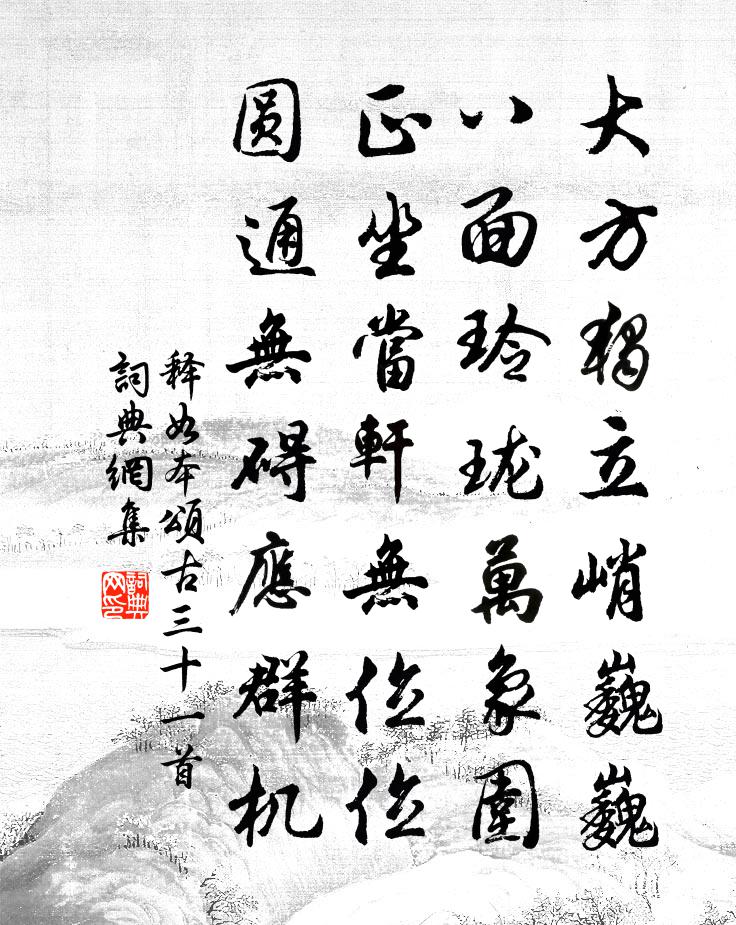 大方獨立峭巍巍
八面玲珑萬象圍
正坐當軒無位位
圓通無碍應群机
释如本頌古三十一首
詞典網集
詞典网印